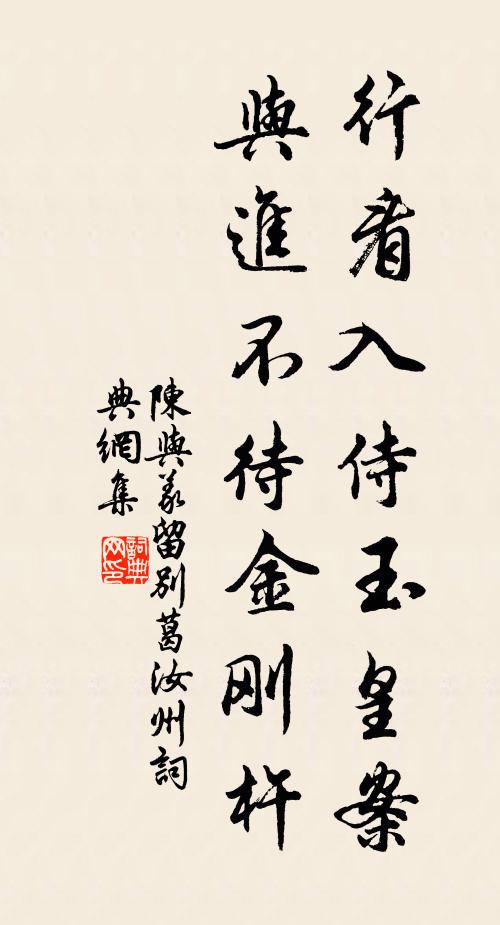 行看入侍玉皇案
與進不待金剛杵
陳與義留別葛汝州詞
典網集
詞典
网印